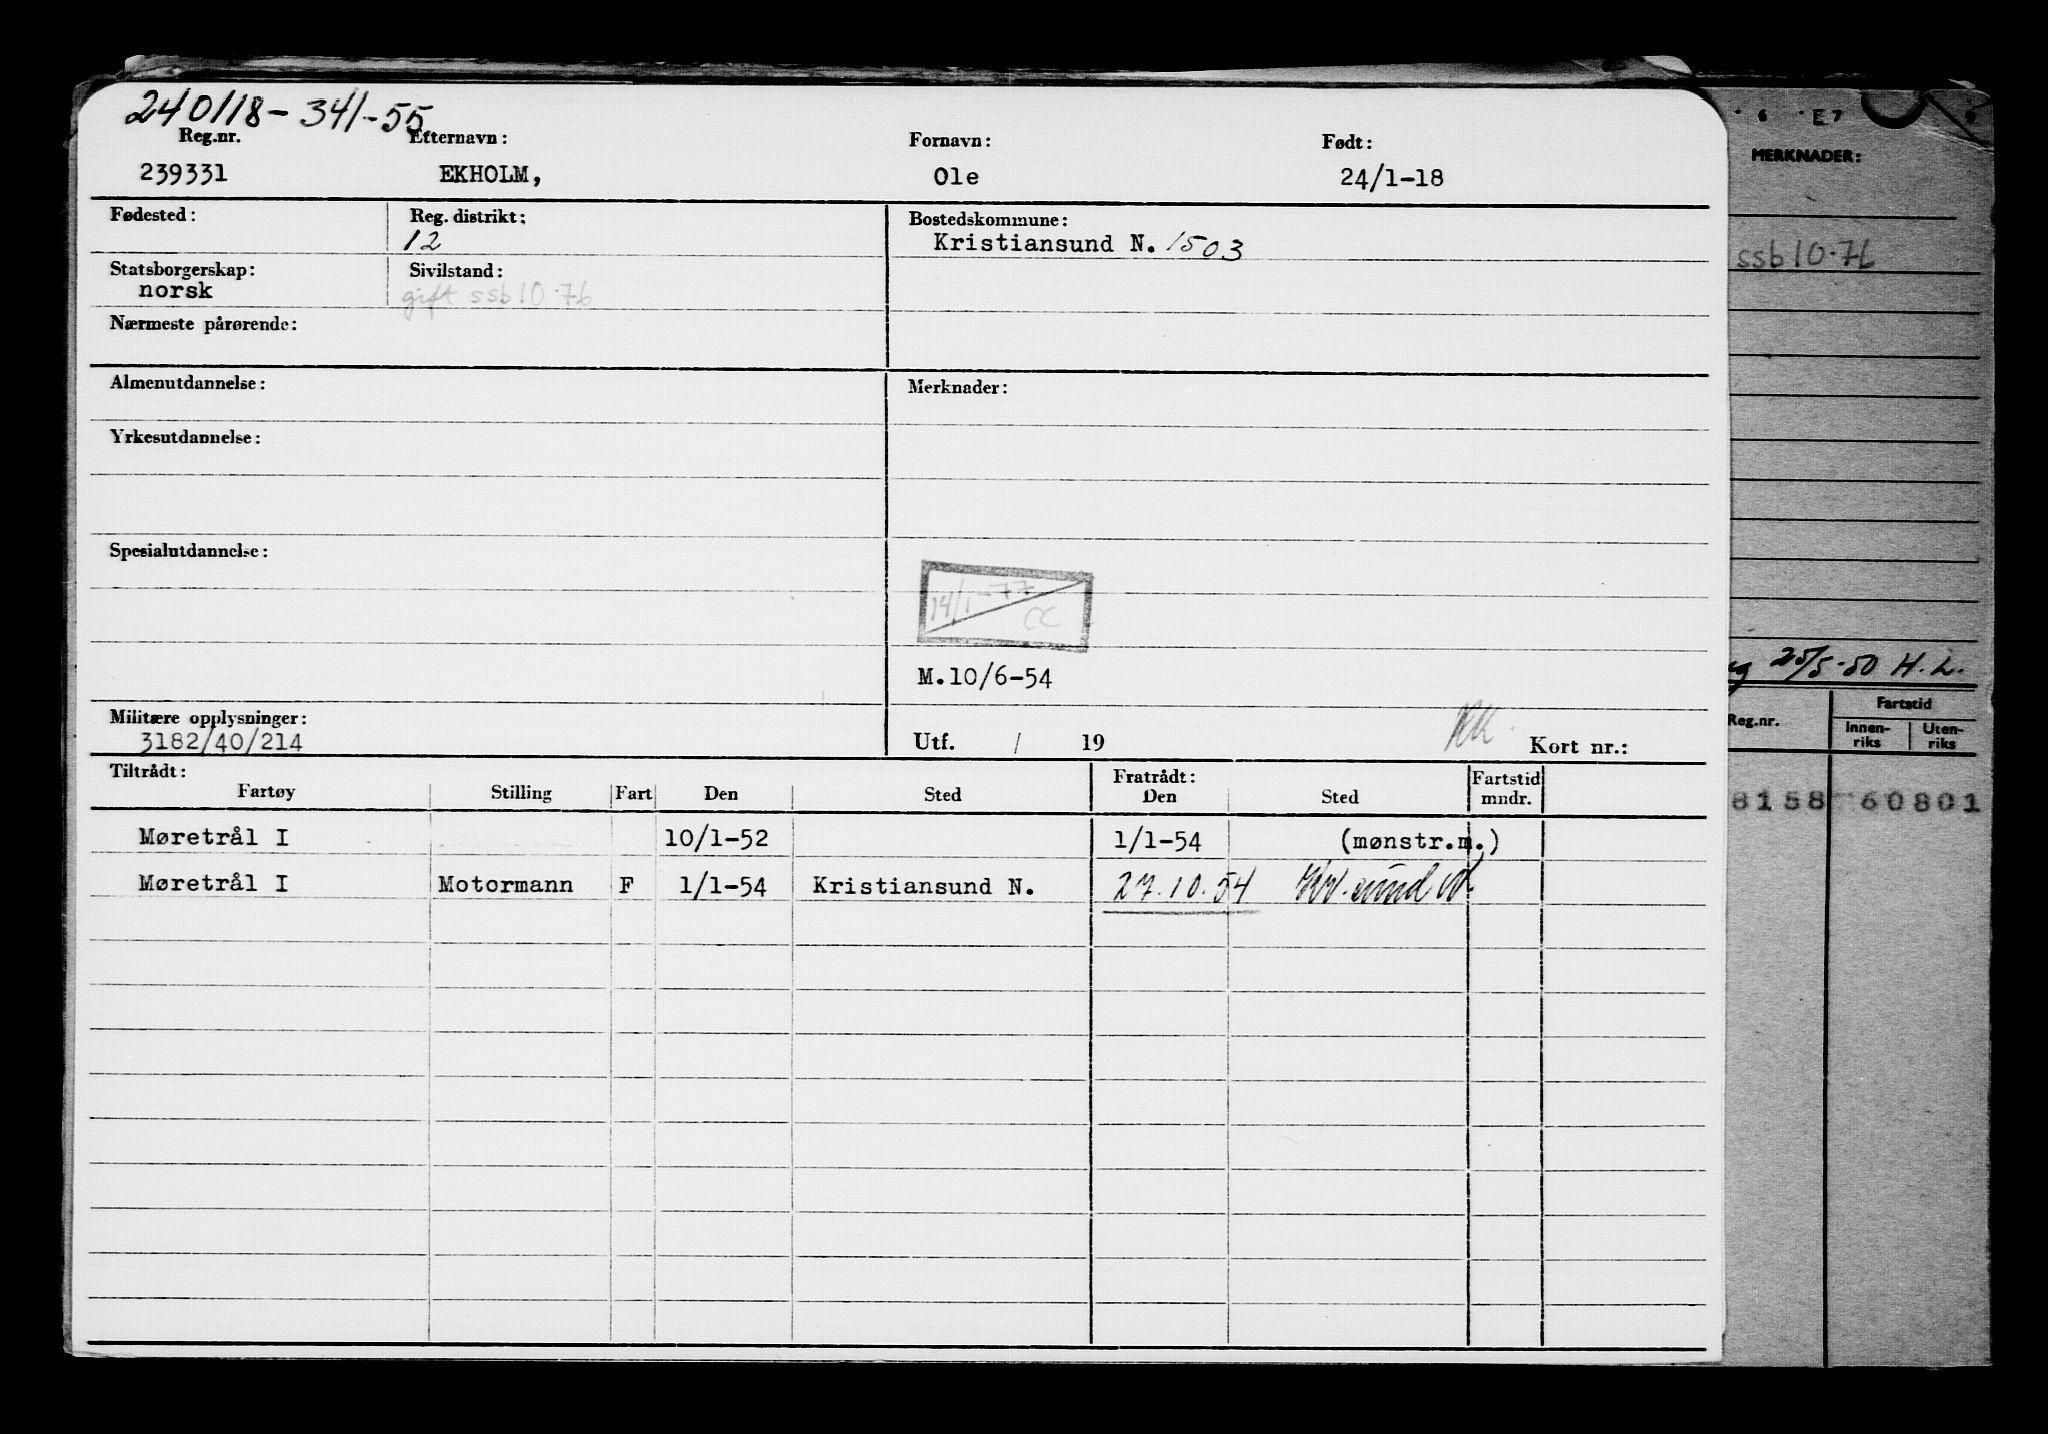 240118-341-55
Reg.nr. Efternavn: Fornavn: Født:
239331 EKHOLM, Ole 24/1-18
Fødested: Reg. distrikt: Bostedskommune:
12 Kristiansund N. 1503
Statsborgerskap: Sivilstand:
norsk gift ssb 10.76
Nærmeste pårørende:
Almenutdannelse: Merknader:
Yrkesutdannelse:
Spesialutdannelse:
14/1-77
M.10/6-54
Militære opplysninger:
3182/40/214
Utf. / 19 KK. Kort nr.:
Tiltrådt: Fratrådt: Fartstid
Fartøy Stilling Fart Den Sted Den Sted mndr.
Møretrål I 10/1-52 1/1-54 (mønstr.m.)
Møretrål I Motormann F 1/1-54 Kristiansund N. 27.10.54 Kr.sund N.
6 E7
MERKNADER:
ssb 10.76
25/5-50 H.L.
Reg.nr. Fartstid
Innen-riks Uten-riks
8158 60801